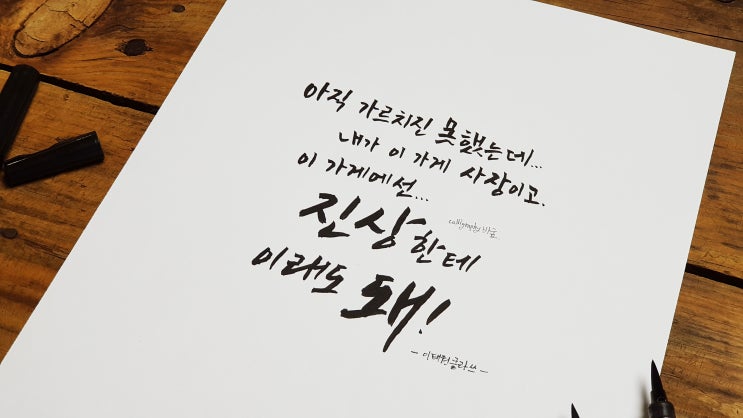 아직 가르치진 못했는데...
내가 이 가게 사장이고.
이 가게에선...
진상한테
calligraphy 바숨
이래도 돼!
- 이태원클라쓰 -